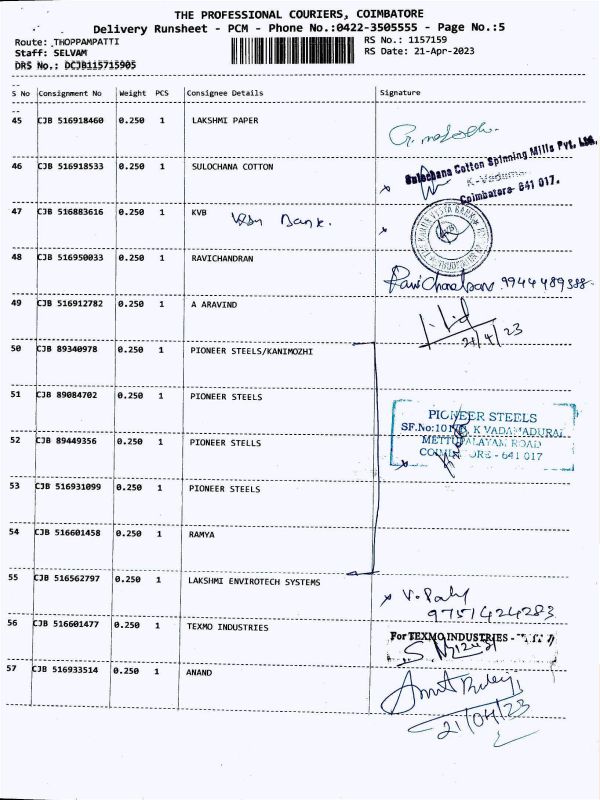 THE PROFESSIONAL COURIERS, COIMBATORE
Delivery Runsheet - PCM - Phone No.:0422-3505555 - Page No.:5
Route: THOPPAMPATTI
Staff: SELVAM
DRS No.: DCJB115715905
RS No.: 1157159
RS Date: 21-Apr-2023
S No Consignment No Weight PCS Consignee Details Signature
45 CJB 516918460 0.250 1 LAKSHMI PAPER
46 CJB 516918533 0.250 1 SULOCHANA COTTON
Sulochana Cotton Spinning Mills Pvt. Ltd.
Coimbatore- 641 017.
47 CJB 516883616 0.250 1 KVB
Bank.
48 CJB 516950033 0.250 1 RAVICHANDRAN
Ravichandran 9944489388
49 CJB 516912782 0.250 1 A ARAVIND
21/4/23
50 CJB 89340978 0.250 1 PIONEER STEELS/KANIMOZHI
51 CJB 89084702 0.250 1 PIONEER STEELS
PIONEER STEELS
K VADAMADURAI
METTUPALAYAM ROAD
COIMBATORE - 641 017
52 CJB 89449356 0.250 1 PIONEER STELLS
53 CJB 516931099 0.250 1 PIONEER STEELS
54 CJB 516601458 0.250 1 RAMYA
55 CJB 516562797 0.250 1 LAKSHMI ENVIROTECH SYSTEMS
9751424283
56 CJB 516601477 0.250 1 TEXMO INDUSTRIES
For TEXMO INDUSTRIES -
57 CJB 516933514 0.250 1 ANAND
21/04/23